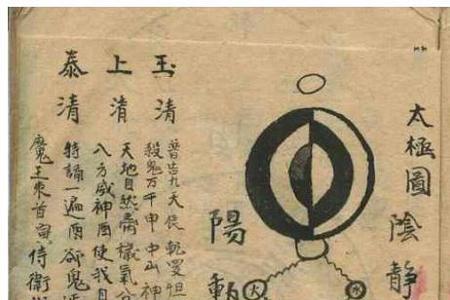 太極圖陰靜
陽動
火
水
玉清
普告九天 乾罗怛
殺鬼万千申中山神
上清
天地自然 穢氣分
八方威神酉使我自
泰清
特誦一遍酉卻鬼延
魔王束首寅侍衛